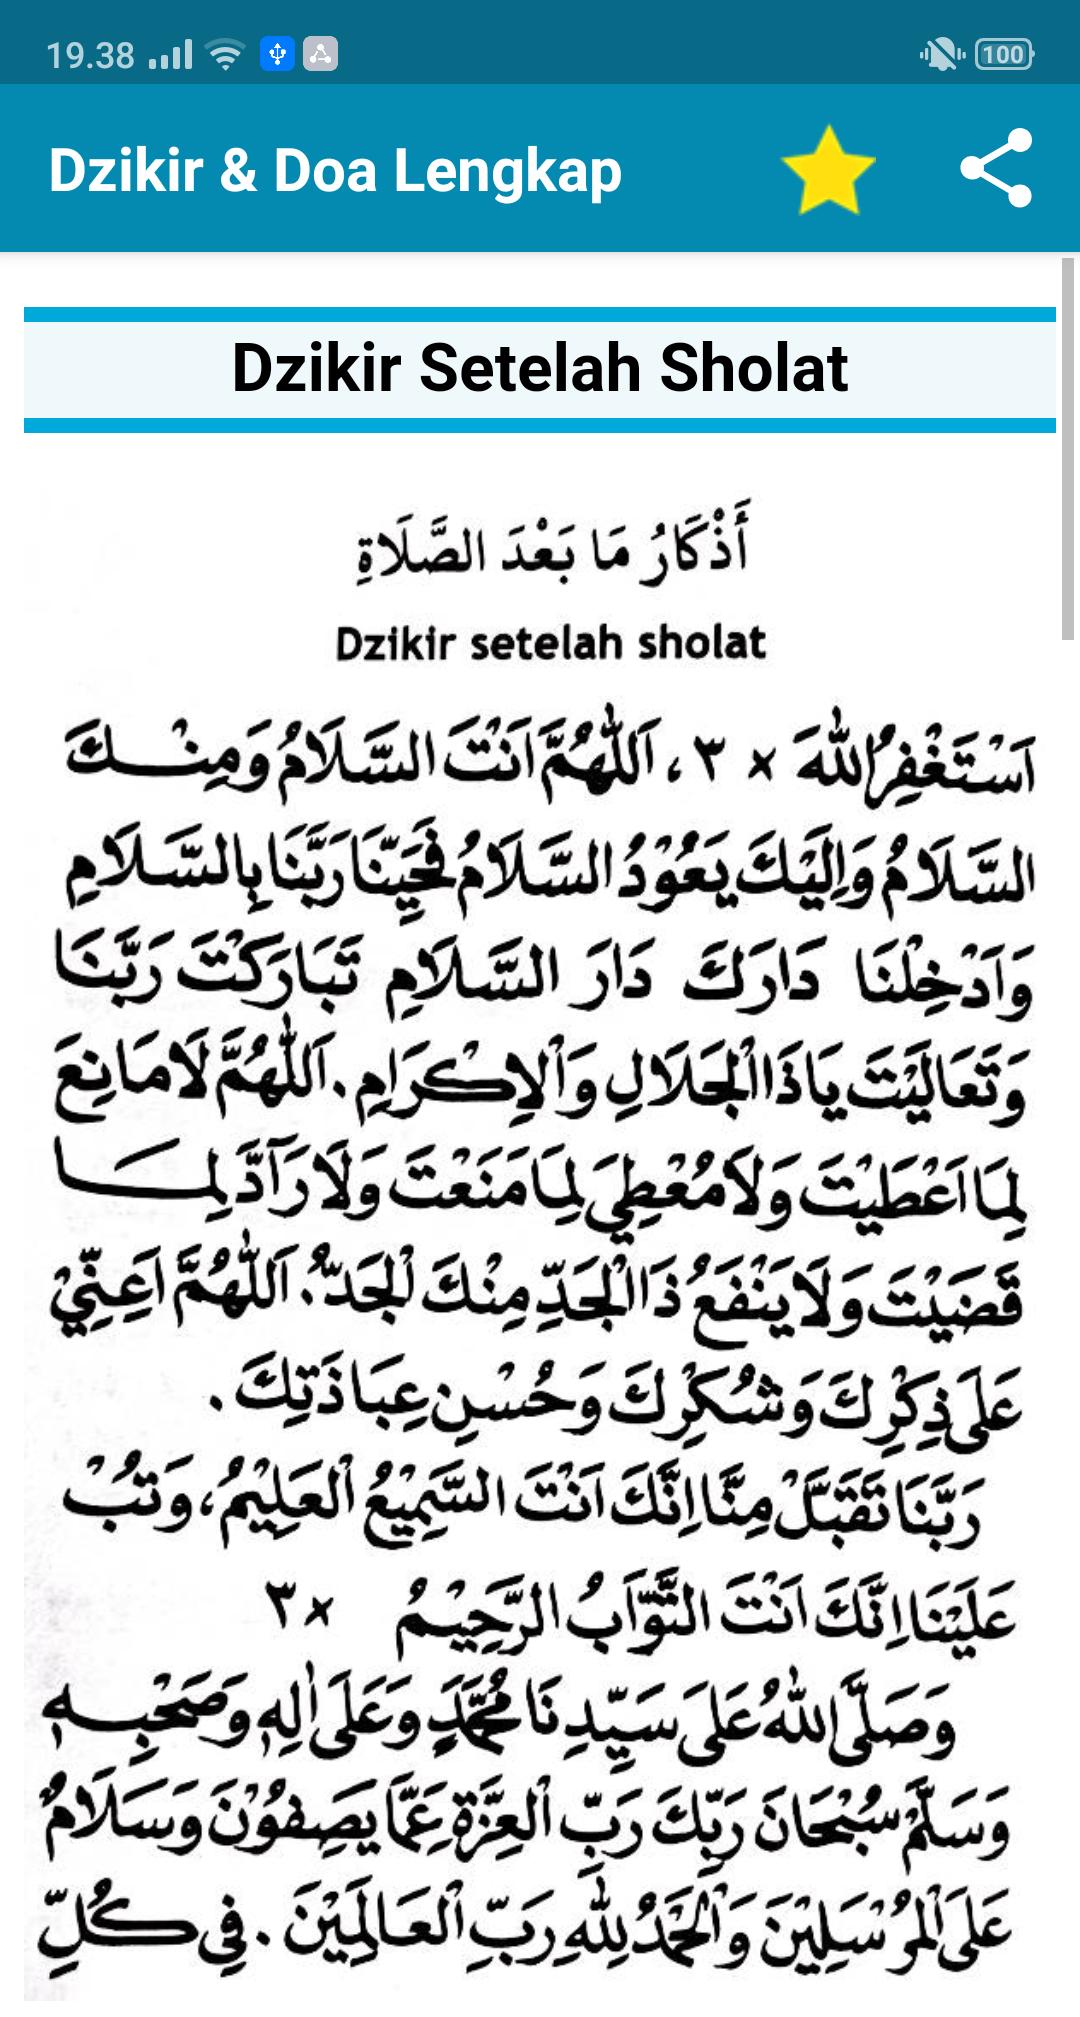 19.38
100
Dzikir & Doa Lengkap
Dzikir Setelah Sholat
أَذْكَارُ مَا بَعْدَ الصَّلَاةِ
Dzikir setelah sholat
اَسْتَغْفِرُ اللهَ × ٣ ، اَللّٰهُمَّ اَنْتَ السَّلَامُ وَمِنْكَ
السَّلَامُ وَاِلَيْكَ يَعُوْدُ السَّلَامُ فَحَيِّنَا رَبَّنَا بِالسَّلَامِ
وَاَدْخِلْنَا دَارَكَ دَارَ السَّلَامِ تَبَارَكْتَ رَبَّنَا
وَتَعَالَيْتَ يَاذَا الْجَلَالِ وَالْاِكْرَامِ . اَللّٰهُمَّ لَا مَانِعَ
لِمَا اَعْطَيْتَ وَلَا مُعْطِيَ لِمَا مَنَعْتَ وَلَا رَآدَّ لِمَا
قَضَيْتَ وَلَا يَنْفَعُ ذَا الْجَدِّ مِنْكَ لْجَدُّ . اَللّٰهُمَّ اَعِنِّيْ
عَلَى ذِكْرِكَ وَشُكْرِكَ وَحُسْنِ عِبَاذَتِكَ .
رَبَّنَا تَقَبَّلْ مِنَّا اِنَّكَ اَنْتَ السَّمِيْعُ الْعَلِيْمُ ، وَتُبْ
عَلَيْنَا اِنَّكَ اَنْتَ التَّوَّابُ الرَّحِيْمُ × ٣
وَصَلَّى اللهُ عَلَى سَيِّدِنَا مُحَمَّدٍ وَعَلَى اٰلِهِ وَصَحْبِهِ
وَسَلَّمْ سُبْحَانَ رَبِّكَ رَبِّ الْعِزَّةِ عَمَّا يَصِفُوْنَ وَسَلَامٌ
عَلَى الْمُرْسَلِيْنَ وَالْحَمْدُ لِلّٰهِ رَبِّ الْعَالَمِيْنَ . فِي كُلِّ